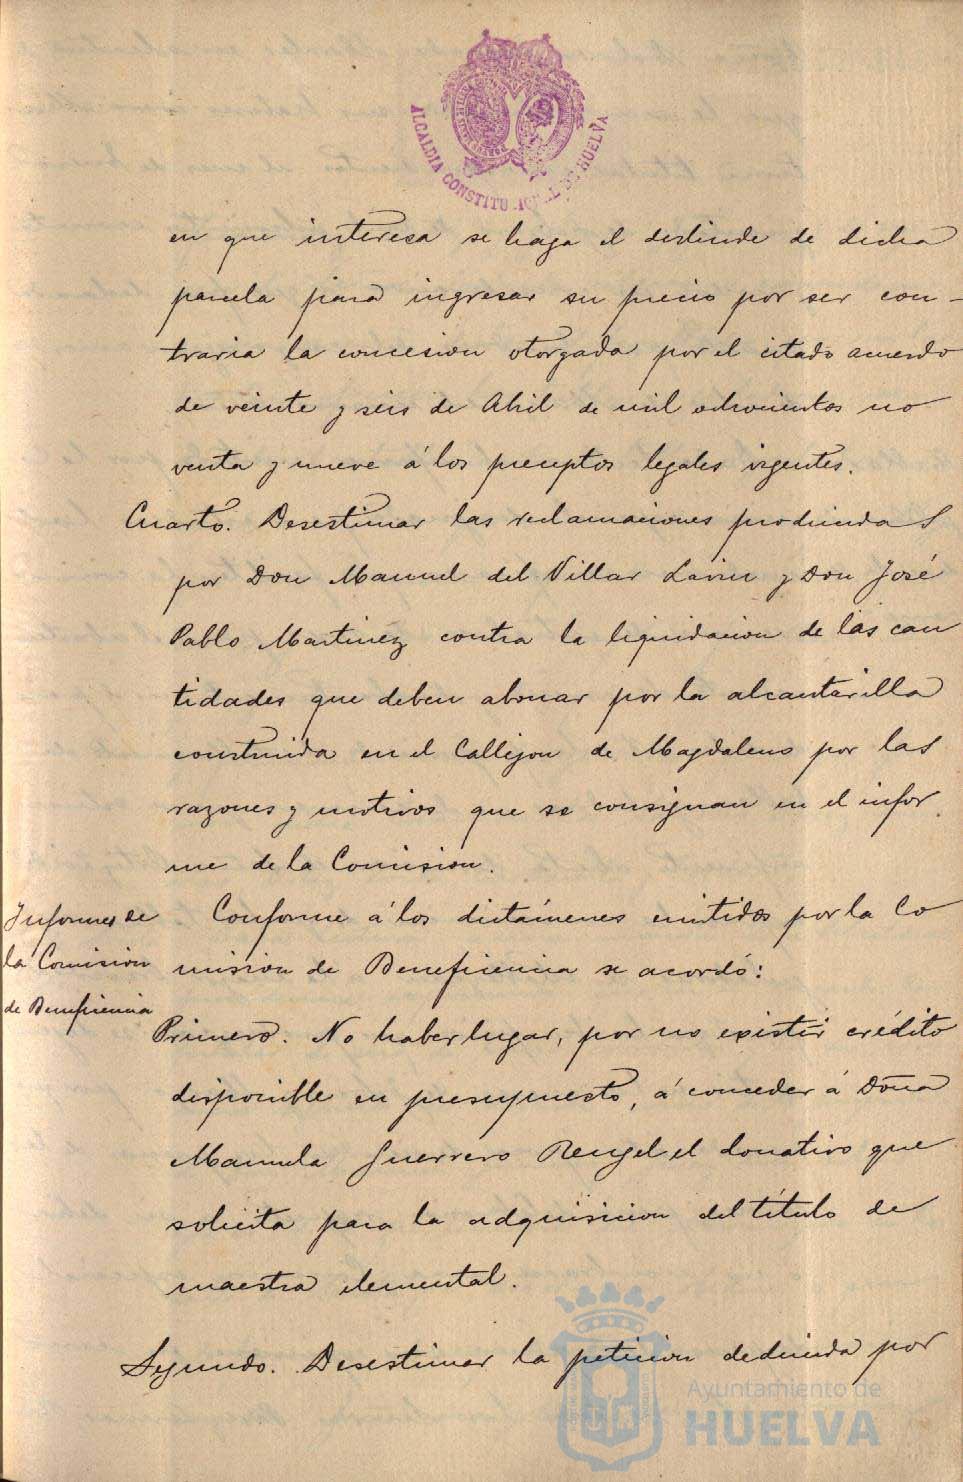 ALCALDIA CONSTITUCIONAL DE HUELVA
en que interesa se haga el deslinde de dicha
parcela para ingresar su precio por ser con-
traria la concesion otorgada por el citado acuerdo
de veinte y seis de Abril de mil ochocientos no
venta y nueve á los preceptos legales vigentes.
Cuarto. Desestimar las reclamaciones producidas
por Don Manuel del Villar Lavin y Don José
Pablo Martinez contra la liquidacion de las can
tidades que deben abonar por la alcantarilla
construida en el Callejon de Magdaleno por las
razones y motivos que se consignan en el infor
me de la Comision.
Informes de
la Comision
de Beneficencia
Conforme á los dictámenes emitidos por la Co
mision de Beneficencia se acordó:
Primero. No haber lugar, por no existir crédito
disponible en presupuesto, á conceder á Doña
Manuela Guerrero Rengel el donativo que
solicita para la adquisicion del título de
maestra elemental.
Segundo. Desestimar la peticion deducida por
Ayuntamiento de
HUELVA